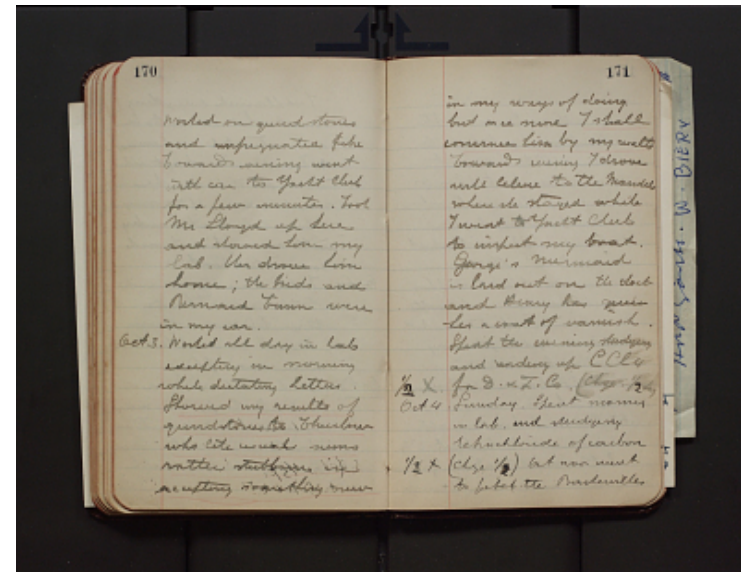 170
worked on grindstones
and impregnated
Towards evening went
with car to Yacht Club
for a few minutes. Took
Mr Lloyd up here
and showed him my
lab. Then drove him
home; the kids and
Bernard were
in my car.
Oct 3. Worked all day in lab
excepting in morning
while dictating letters.
Showed my results of
grindstones to Thurlow
who like usual seems
rather stubborn in
accepting something new
171
in my ways of doing
but once more I shall
convince him by my results
Towards evening I drove
with Celine to the
where she stayed while
I went to Yacht Club
to inspect my boat.
George's Mermaid
is laid out on the dock
and Henry has given
her a coat of varnish.
Spent the evening studying
and reading up CCl4
1/2 X. for D. & I. Co. (Chge 1/2 day)
Oct 4 Sunday. Spent morning
in lab. and studying
tetrachloride of carbon
1/2 X (Chge 1/2) but now went
to fetch the Baskervilles
W. BIERY